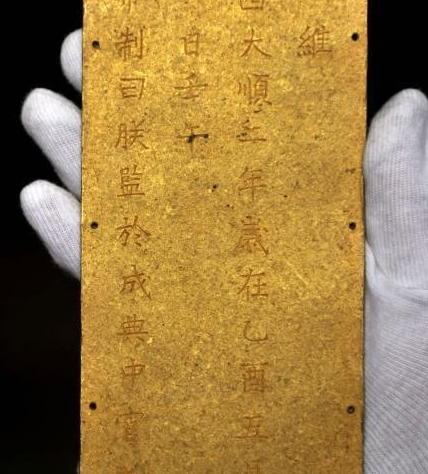 維
西大順二年歲在乙酉五月
日壬午
制曰朕監於成典中宮